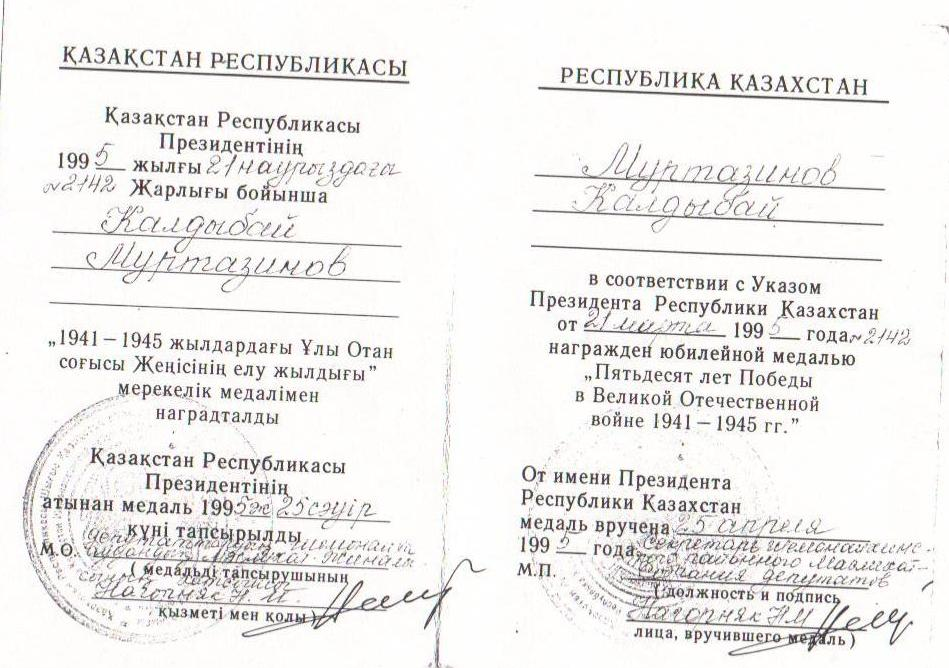 ҚАЗАҚСТАН РЕСПУБЛИКАСЫ
Қазақстан Республикасы
Президентінің
1995 жылғы 21 наурыздағы
№2142 Жарлығы бойынша
Калдыбай
Муртазинов
„1941 – 1945 жылдардағы Ұлы Отан
соғысы Жеңісінің елу жылдығы”
мерекелік медалімен
наградталды
Қазақстан Республикасы
Президентінің
атынан медаль 1995ж 25 сәуір
күні тапсырылды
М.О.
( медальді тапсырушының
Нагорняк Н.М.
қызметі мен қолы )
РЕСПУБЛИКА КАЗАХСТАН
Муртазинов
Калдыбай
в соответствии с Указом
Президента Республики Казахстан
от 21 марта 1995 года №2142
награжден юбилейной медалью
„Пятьдесят лет Победы
в Великой Отечественной
войне 1941 – 1945 гг.”
От имени Президента
Республики Казахстан
медаль вручена 25 апреля
1995 года. секретарь
районного
М.П. депутатов
( должность и подпись
Нагорняк НМ
лица, вручившего медаль )